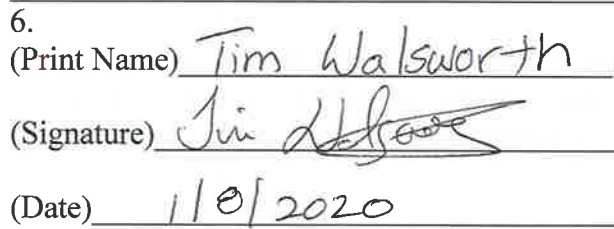 6.
(Print Name) Tim Walsworth
(Signature) Tim Walsworth
(Date) 1/8/2020